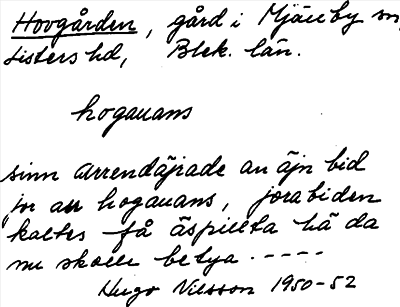 Hovgården, gård i Mjällby sn,
Listers hd, Blek. län.
hogauans
sinn arrendäjrade an äjn bid
jor au hogauans, jorabiden
kaltes få äspillta hä da
nu skolle betya.-----
Hugo Nilsson 1950-52